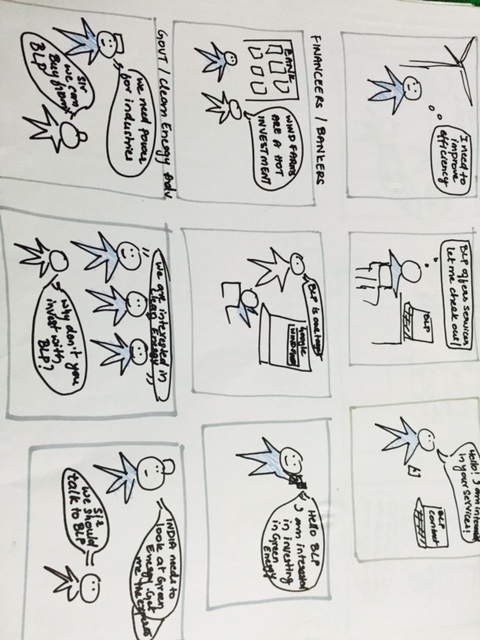 I need to
improve
efficiency
BLP offers services
let me check out!
BLP
Hello! I am
in your services!
BLP
contact
FINANCEERS / BANKERS
BANK
WIND FARMS
ARE A HOT
INVESTMENT
BLP is one
Google
Hello BLP
I am interested
in investing
in Green
Energy
GOVT / Clean Energy Adv
we need power
for industries
Sir
we can
Buy from
BLP
"we are interested in
Energy"
why don't you
invest with
BLP?
INDIA needs to
look at Green
Energy. Get
me the experts
Sir
we should
talk to BLP